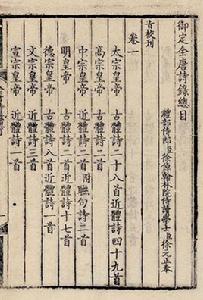 御定全唐詩錄總目
禮部侍郎臣徐倬翰林院侍讀學士臣徐元正奉
旨校刊
卷一
太宗皇帝 古體詩二十八首近體詩四十九首
高宗皇帝 古體詩一首近體詩二首
中宗皇帝 近體詩二首附聯句詩二首
明皇帝 古體詩八首近體詩十七首
德宗皇帝 古體詩八首近體詩一首
文宗皇帝 近體詩三首
宣宗皇帝 近體詩二首